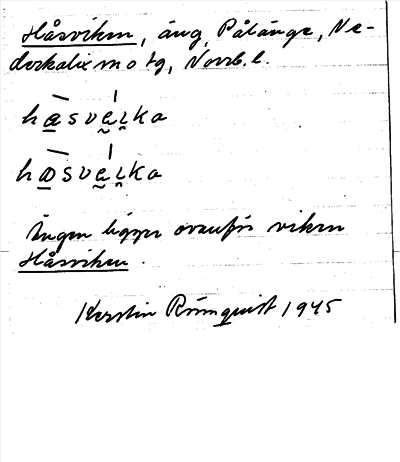 Håsviken, äng, Pålänge, Ne-
derkalix m o tg, Norrb. l.
hasvei̯ka
hɷsvei̯ka
Ängen ligger ovanför viken
Håsviken.
Kerstin Rönnquist 1945